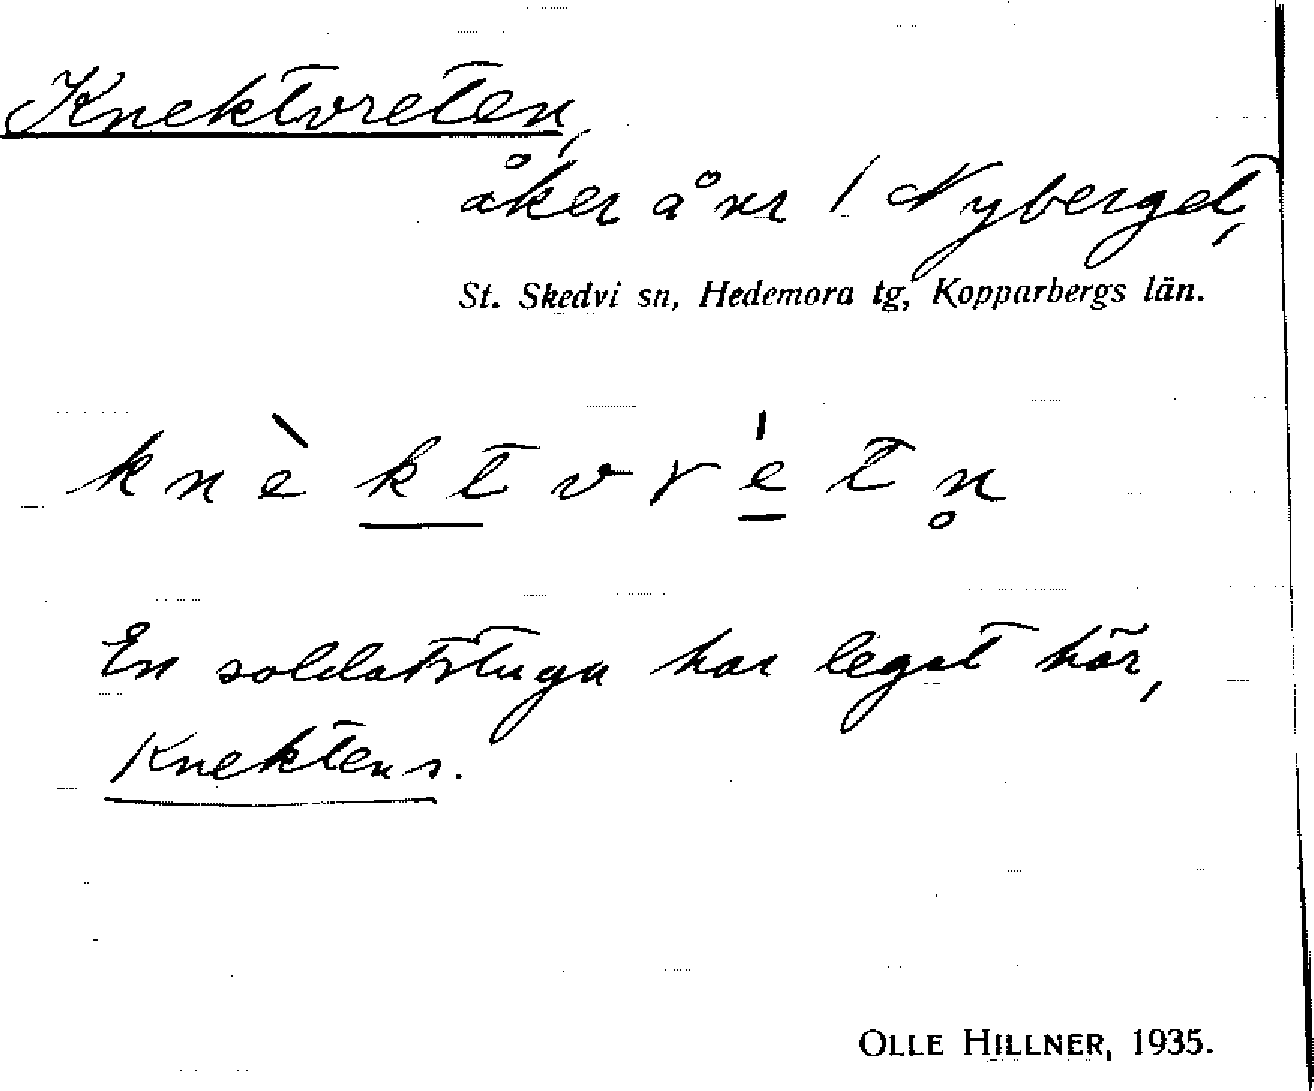 Knektvreten,
åker å nr 1 Nyberget,
St. Skedvi sn, Hedemora tg, Kopparbergs län.
knèktvrétn̥
En soldatstuga har legat här,
Knektens.
OLLE HILLNER, 1935.